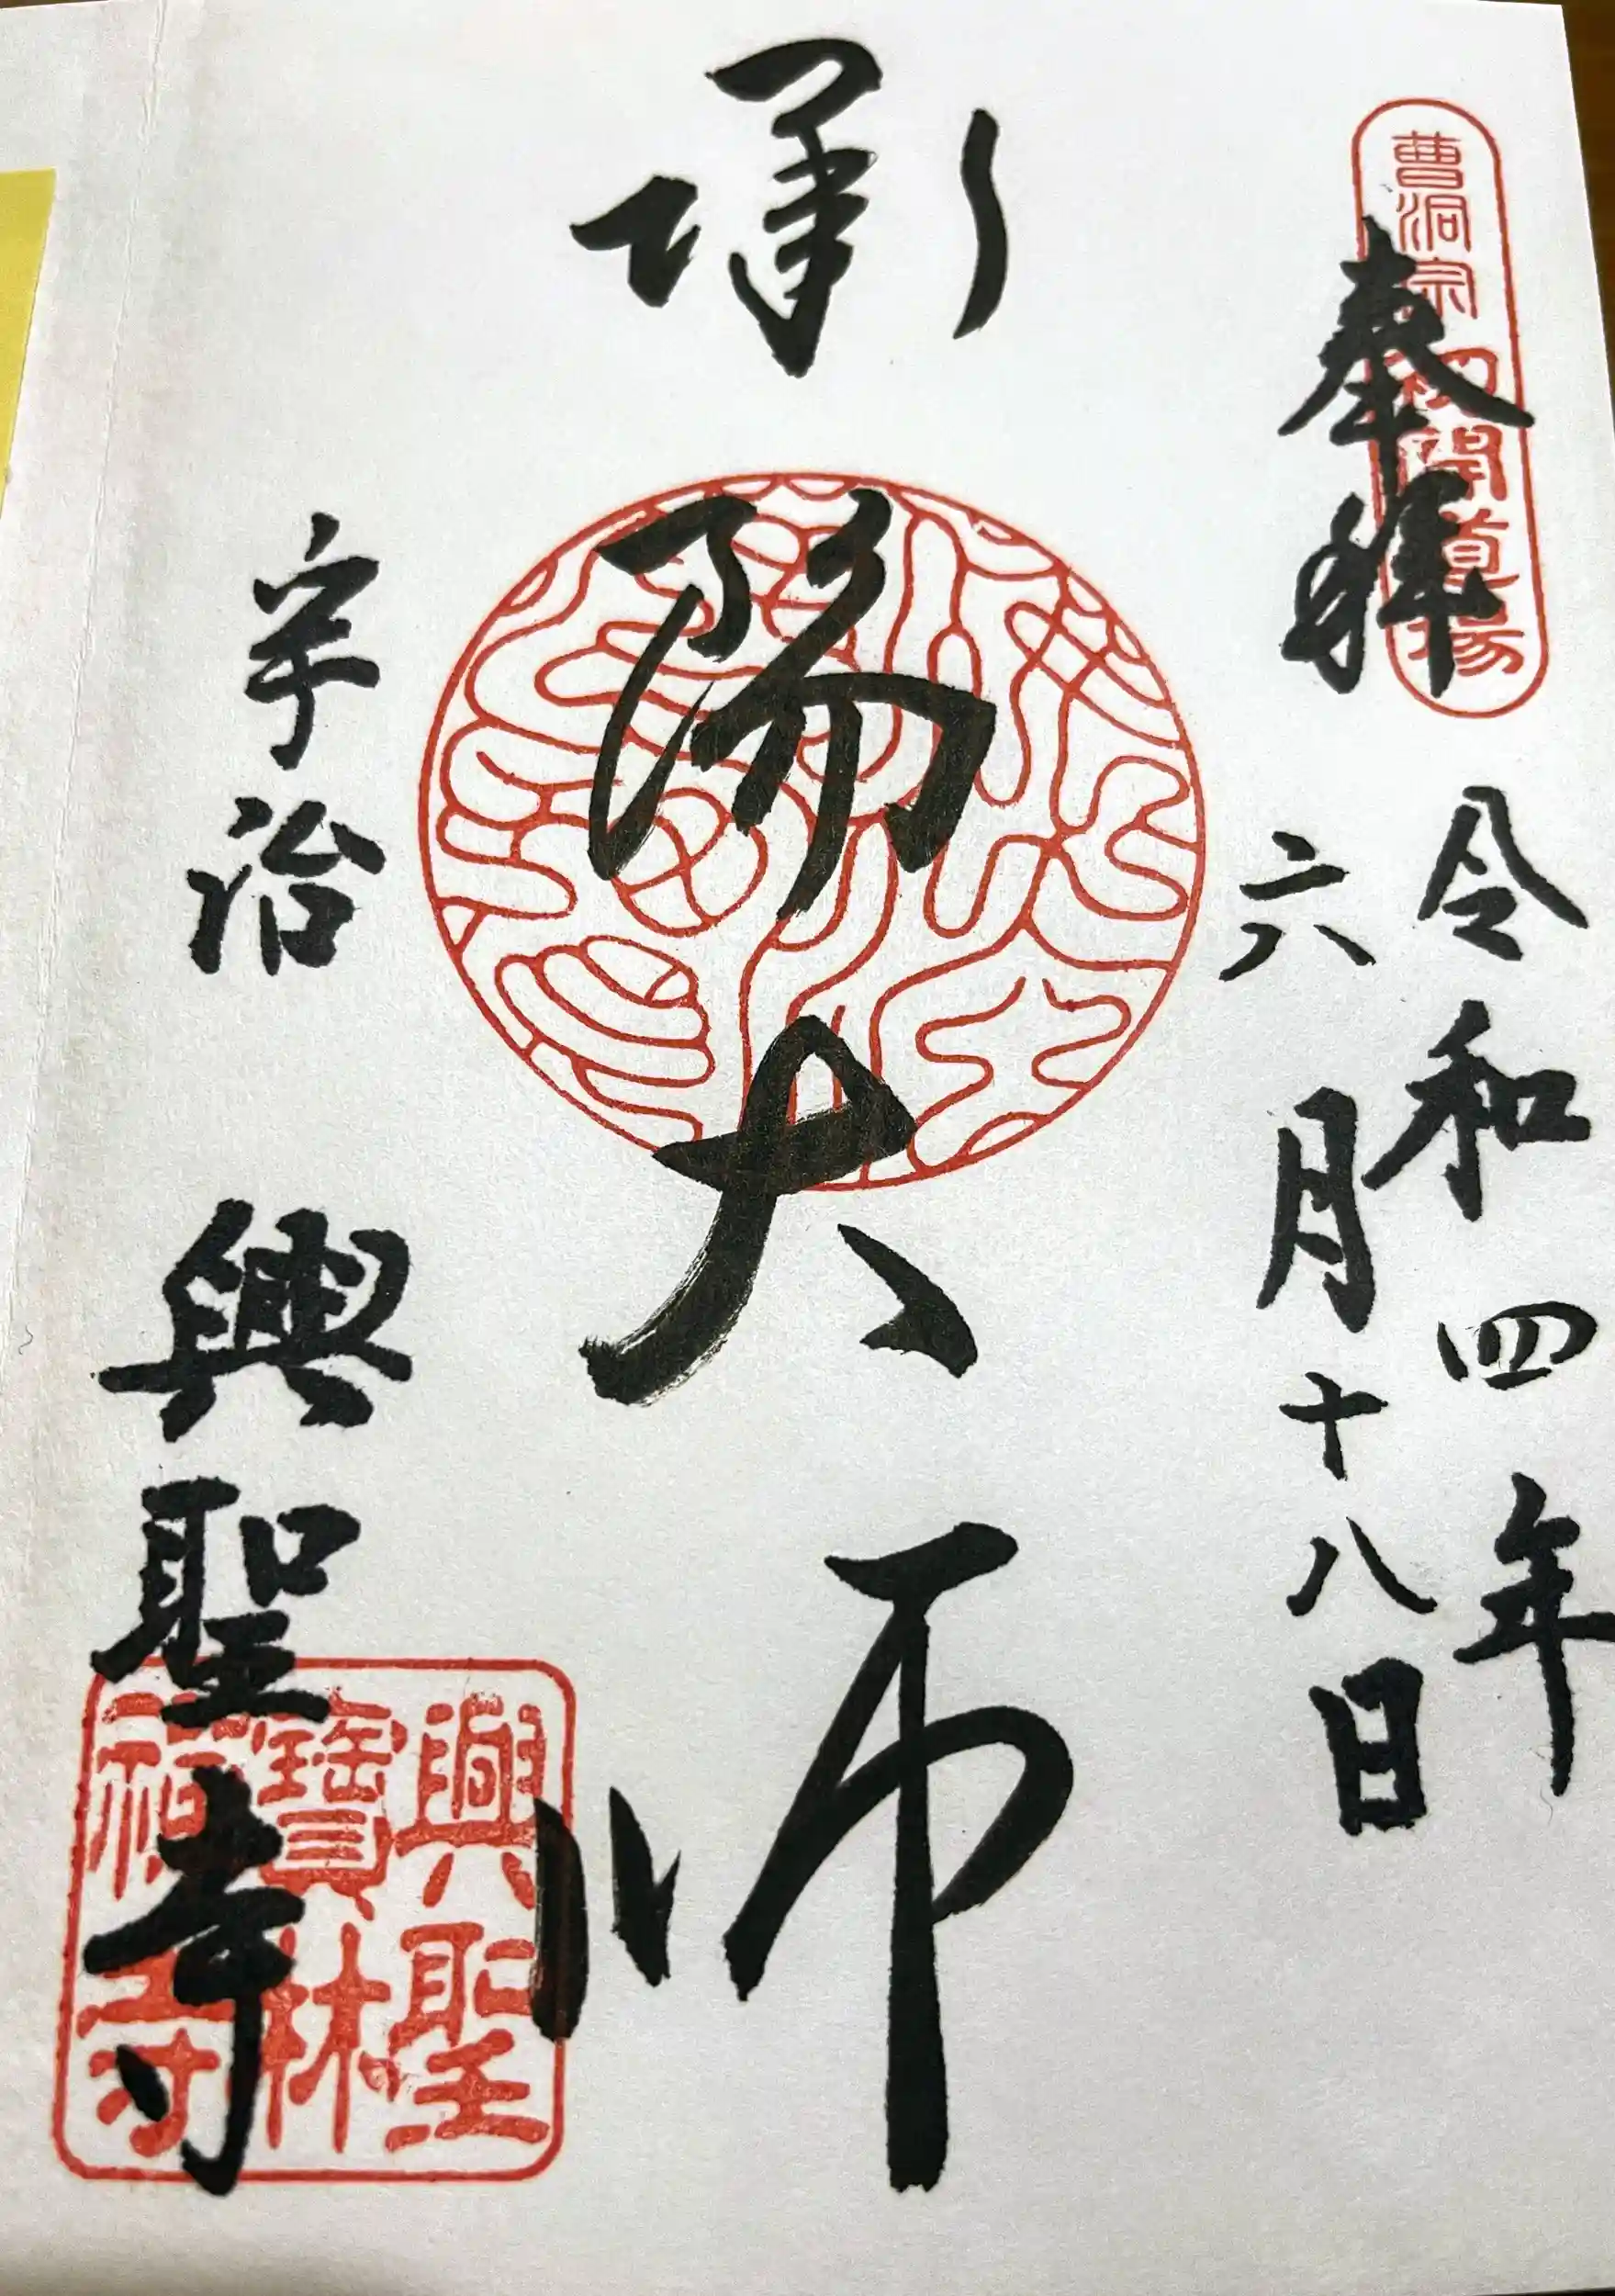 曹洞宗初開道場
奉拝
令和四年
六月十八日
承陽大師
宇治 興聖寺
興聖寶林禅寺